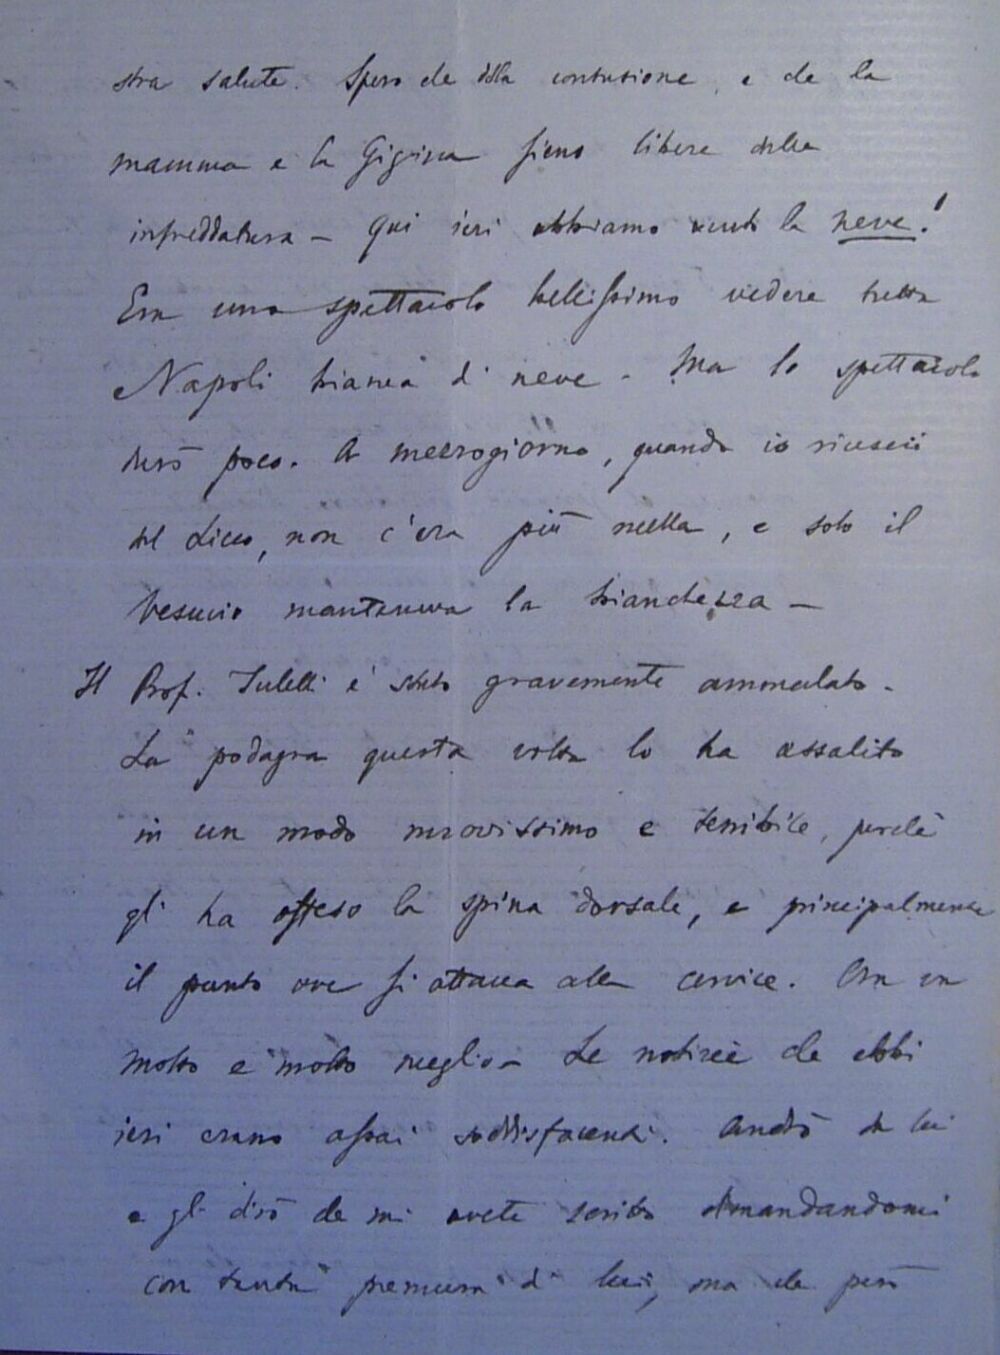 stra salute. Spero che della contusione, e che la
mamma e la Gigina sieno libere dalla
infreddatura – Qui ieri abbiamo avuto la neve!
Era uno spettacolo bellissimo vedere tutta
Napoli bianca di neve – Ma lo spettacolo
durò poco. A mezzogiorno, quando io riuscii
dal Liceo, non c'era più nulla, e solo il
Vesuvio manteneva la bianchezza –
Il Prof. Tulelli è stato gravemente ammalato –
La podagra questa volta lo ha assalito
in un modo nuovissimo e terribile, perchè
gli ha offeso la spina dorsale, e principalmente
il punto ove si attacca alla cervice. Ora va
molto e molto meglio – Le notizie che ebbi
ieri erano assai soddisfacenti. Andrò da lui
e gli dirò che mi avete scritto domandandomi
con tanta premura di lui, ma che però